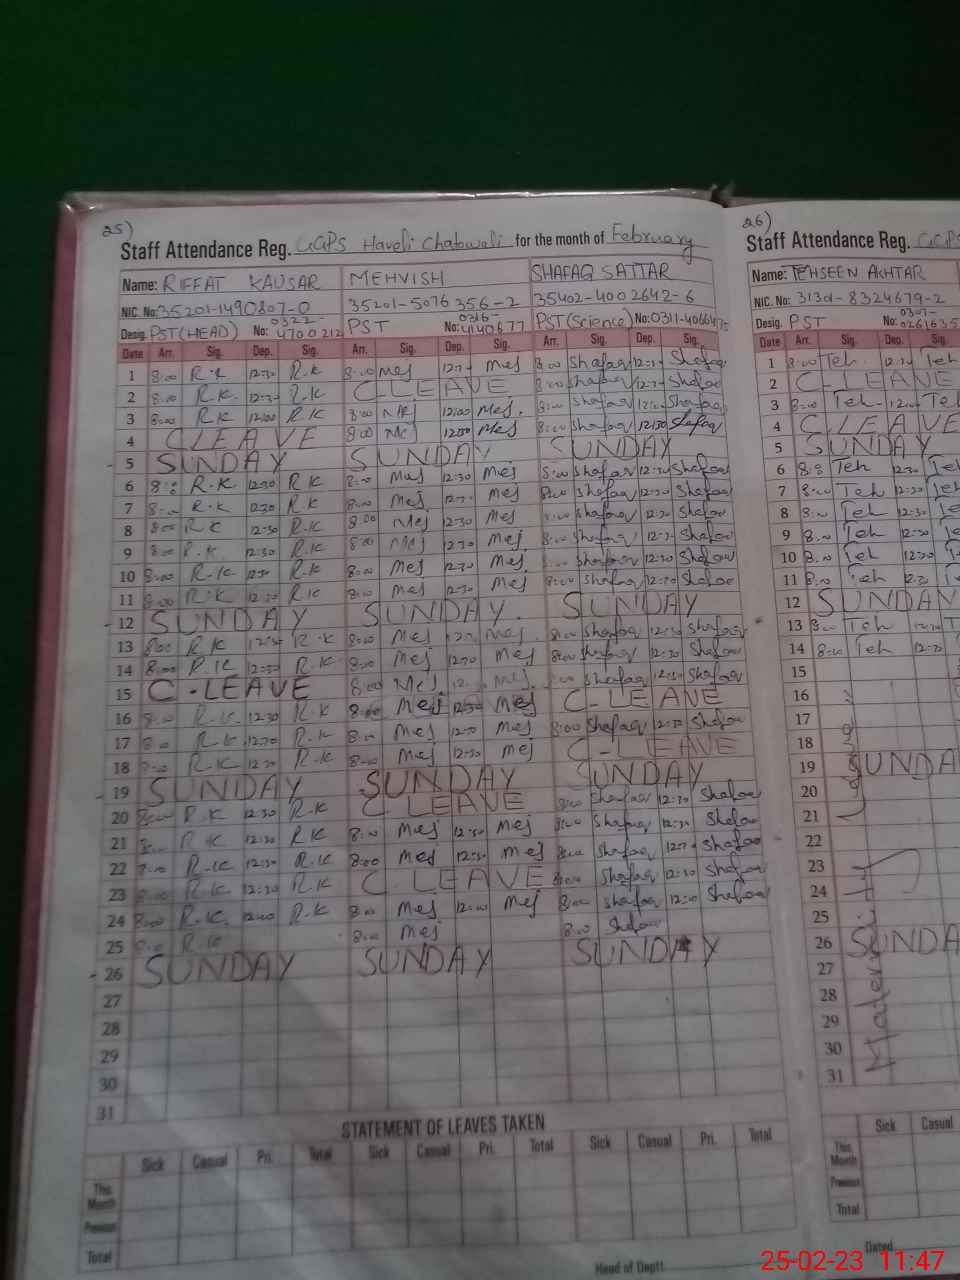 25)
Staff Attendance Reg. GGPS Haveli Chabuwali for the month of February
Name: RIFFAT KAUSAR MEHVISH SHAFAQ SATTAR
NIC. No: 35201-1490807-0 35201-5076356-2 35402-4002642-6
Desig. PST(HEAD) No: 0322-4700212 PST No: 0316-4140677 PST(Science) No: 0311-4066475
Date Arr. Sig. Dep. Sig. Arr. Sig. Dep. Sig. Arr. Sig. Dep. Sig.
1 8:00 R.K 12:30 R.K 8:00 Mes Mes 8:00 Shafaq Shafaq
2 8:00 R.K. R.K C-LEAVE 8:00 Shafaq Shafaq
3 8:00 R.K 12:00 R.K 8:00 12:00 Mes. 8:00 Shafaq 12:00 Shafaq
4 C LEAVE 8:00 Mes 8:00 Shafaq 12:30 Shafaq
5 SUNDAY SUNDAY SUNDAY
6 8:00 R.K. 12:30 R.K 8:00 Mes 12:30 Mes 8:00 Shafaq 12:30 Shafaq
7 8:00 R.K 12:30 R.K 8:00 Mes Mes 8:00 Shafaq 12:30 Shafaq
8 8:00 R.K 12:30 R.K 8:00 Mes 12:30 Mes 8:00 Shafaq 12:30 Shafaq
9 8:00 R.K. 12:30 R.K 8:00 Mes 12:30 Mes 8:00 Shafaq Shafaq
10 8:00 R.K. 12:30 R.K 8:00 Mes 12:30 Mes Shafaq 12:30 Shafaq
11 8:00 R.K 12:30 R.K 8:00 Mes 12:30 Mes 8:00 Shafaq 12:30 Shafaq
12 SUNDAY SUNDAY. SUNDAY
13 8:00 R.K 12:30 R.K 8:00 Mes 12:30 Mes 8:00 Shafaq 12:30 Shafaq
14 8:00 R.K 12:30 R.K 8:00 Mes 12:30 Mes 8:00 Shafaq 12:30 Shafaq
15 C-LEAVE 8:00 Mes. Mes. Shafaq 12:30 Shafaq
16 8:00 R.K. 12:30 R.K 8:00 Mes 12:30 Mes C-LEAVE
17 8:00 R.K 12:30 R.K 8:00 Mes 12:30 Mes 8:00 Shafaq 12:30 Shafaq
18 8:00 R.K 12:30 R.K 8:00 Mes 12:30 Mes C-LEAVE
19 SUNDAY SUNDAY SUNDAY
20 8:00 R.K 12:30 R.K C LEAVE 8:00 Shafaq 12:30 Shafaq
21 R.K 12:30 R.K 8:00 Mes 12:30 Mes 8:00 Shafaq 12:30 Shafaq
22 8:00 R.K 12:30 R.K 8:00 Mes 12:30 Mes 8:00 Shafaq Shafaq
23 8:00 R.K 12:30 R.K C. LEAVE 8:00 Shafaq 12:30 Shafaq
24 8:00 R.K. 12:00 R.K 8:00 Mes 12:00 Mes 8:00 Shafaq 12:00 Shafaq
25 8:00 R.K 8:00 Mes 8:00 Shafaq
26 SUNDAY SUNDAY SUNDAY
27
28
29
30
31
STATEMENT OF LEAVES TAKEN
Sick Casual Pri. Total Sick Casual Pri. Total Sick Casual Pri. Total
This Month
Previous
Total
Head of Deptt
26)
Staff Attendance Reg. GGPS
Name: TEHSEEN AKHTAR
NIC. No: 31301-8324679-2
Desig. PST No: 0307-0261635
Date Arr. Sig. Dep. Sig.
1 8:00 Teh. Teh
2 C-LEAVE
3 8:00 Teh 12:00 Teh
4 C. LEAVE
5 SUNDAY
6 8:00 Teh 12:30 Teh
7 8:00 Teh 12:30 Teh
8 8:00 Teh 12:30
9 8:00 Teh 12:30
10 8:00 Teh 12:30
11 8:00 Teh 12:30
12 SUNDAY
13 8:00 Teh 12:30
14 8:00 Teh 12:30
15
16
17
18
19 SUNDA
20
21
22
23
24
25
26 SUNDA
27
28
29
30
31
Maternity
Sick Casual
This Month
Previous
Total
Dated
25-02-23 11:47